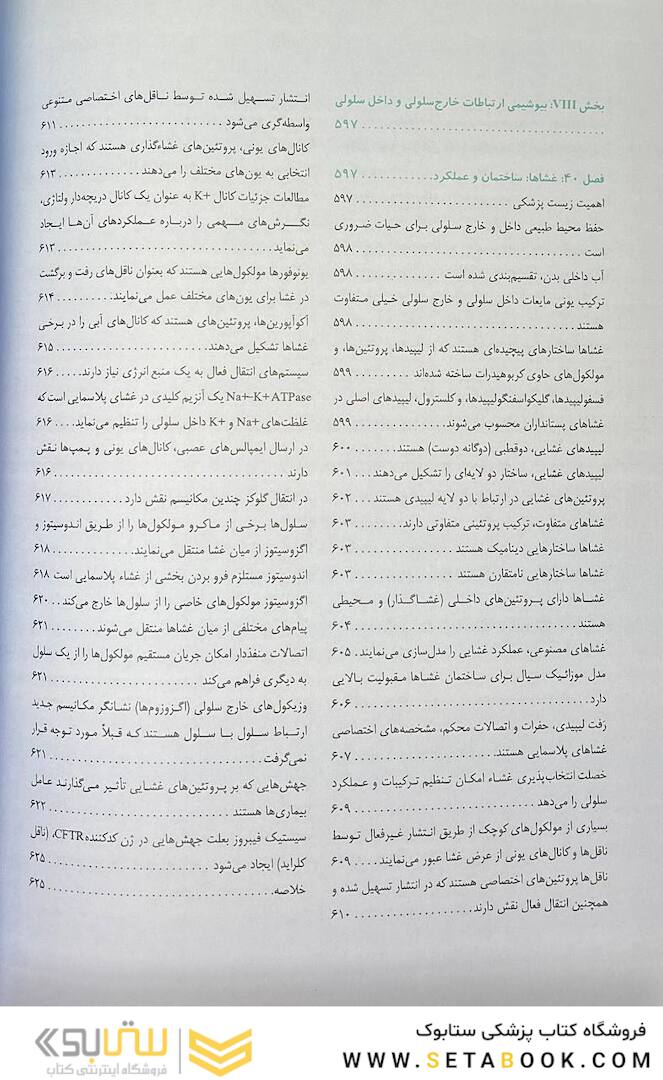 بخش VIII: بیوشیمی ارتباطات خارج‌سلولی و داخل سلولی
۵۹۷
فصل ۴۰: غشاها: ساختمان و عملکرد ۵۹۷
اهمیت زیست پزشکی ۵۹۷
حفظ محیط طبیعی داخل و خارج سلولی برای حیات ضروری
است ۵۹۸
آب داخلی بدن، تقسیم‌بندی شده است ۵۹۸
ترکیب یونی مایعات داخل سلولی و خارج سلولی خیلی متفاوت
هستند ۵۹۸
غشاها ساختارهای پیچیده‌ای هستند که از لیپیدها، پروتئین‌ها، و
مولکول‌های حاوی کربوهیدرات ساخته شده‌اند ۵۹۹
فسفولیپیدها، گلیکواسفنگولیپیدها، و کلسترول، لیپیدهای اصلی در
غشاهای پستانداران محسوب می‌شوند ۵۹۹
لیپیدهای غشایی، دوقطبی (دوگانه دوست) هستند ۶۰۰
لیپیدهای غشایی، ساختار دو لایه‌ای را تشکیل می‌دهند ۶۰۱
پروتئین‌های غشایی در ارتباط با دو لایه لیپیدی هستند ۶۰۲
غشاهای متفاوت، ترکیب پروتئینی متفاوتی دارند ۶۰۳
غشاها ساختارهایی دینامیک هستند ۶۰۳
غشاها ساختارهایی نامتقارن هستند ۶۰۳
غشاها دارای پروتئین‌های داخلی (غشاگذار) و محیطی
هستند ۶۰۴
غشاهای مصنوعی، عملکرد غشایی را مدل‌سازی می‌نمایند ۶۰۵
مدل موزائیک سیال برای ساختمان غشاها مقبولیت بالایی
دارد ۶۰۶
رَفت لیپیدی، حفرات و اتصالات محکم، مشخصه‌های اختصاصی
غشاهای پلاسمایی هستند ۶۰۷
خصلت انتخاب‌پذیری غشاء امکان تنظیم ترکیبات و عملکرد
سلولی را می‌دهد ۶۰۹
بسیاری از مولکول‌های کوچک از طریق انتشار غیرفعال توسط
ناقل‌ها و کانال‌های یونی از عرض غشا عبور می‌نمایند ۶۰۹
ناقل‌ها پروتئین‌های اختصاصی هستند که در انتشار تسهیل شده و
همچنین انتقال فعال نقش دارند ۶۱۰
انتشار تسهیل شده توسط ناقل‌های اختصاصی متنوعی
واسطه‌گری می‌شود ۶۱۱
کانال‌های یونی، پروتئین‌های غشاءگذاری هستند که اجازه ورود
انتخابی به یون‌های مختلف را می‌دهند ۶۱۳
مطالعات جزئیات کانال K+ به عنوان یک کانال دریچه‌دار ولتاژی،
نگرش‌های مهمی را درباره عملکردهای آن‌ها ایجاد
می‌نماید ۶۱۳
یونوفورها مولکول‌هایی هستند که بعنوان ناقل‌های رفت و برگشت
در غشا برای یون‌های مختلف عمل می‌نمایند ۶۱۴
آکوآپورین‌ها، پروتئین‌های هستند که کانال‌های آبی را در برخی
غشاها تشکیل می‌دهند ۶۱۵
سیستم‌های انتقال فعال به یک منبع انرژی نیاز دارند ۶۱۶
Na+-K+ATPase یک آنزیم کلیدی در غشای پلاسمایی است که
غلظت‌های Na+ و K+ داخل سلولی را تنظیم می‌نماید ۶۱۶
در ارسال ایمپالس‌های عصبی، کانال‌های یونی و پمپ‌ها نقش
دارند ۶۱۶
در انتقال گلوکز چندین مکانیسم نقش دارد ۶۱۷
سلول‌ها برخی از ماکرو مولکول‌ها را از طریق اندوسیتوز و
اگزوسیتوز از میان غشا منتقل می‌نمایند ۶۱۸
اندوسیتوز مستلزم فرو بردن بخشی از غشاء پلاسمایی است ۶۱۸
اگزوسیتوز مولکول‌های خاصی را از سلول‌ها خارج می‌کند ۶۲۰
پیام‌های مختلفی از میان غشاها منتقل می‌شوند ۶۲۱
اتصالات منفذدار امکان جریان مستقیم مولکول‌ها را از یک سلول
به دیگری فراهم می‌کند ۶۲۱
وزیکول‌های خارج سلولی (اگزوزوم‌ها) نشانگر مکانیسم جدید
ارتباط سلول با سلول هستند که قبلاً مورد توجه قرار
نمی‌گرفت ۶۲۱
جهش‌هایی که بر پروتئین‌های غشایی تأثیر می‌گذارند عامل
بیماری‌ها هستند ۶۲۲
سیستیک فیبروز بعلت جهش‌هایی در ژن کدکننده CFTR، (ناقل
کلراید) ایجاد می‌شود ۶۲۵
خلاصه ۶۲۵
فروشگاه کتاب پزشکی ستابوک
WWW.SETABOOK.COM
ستابوک
فروشگاه اینترنتی کتاب